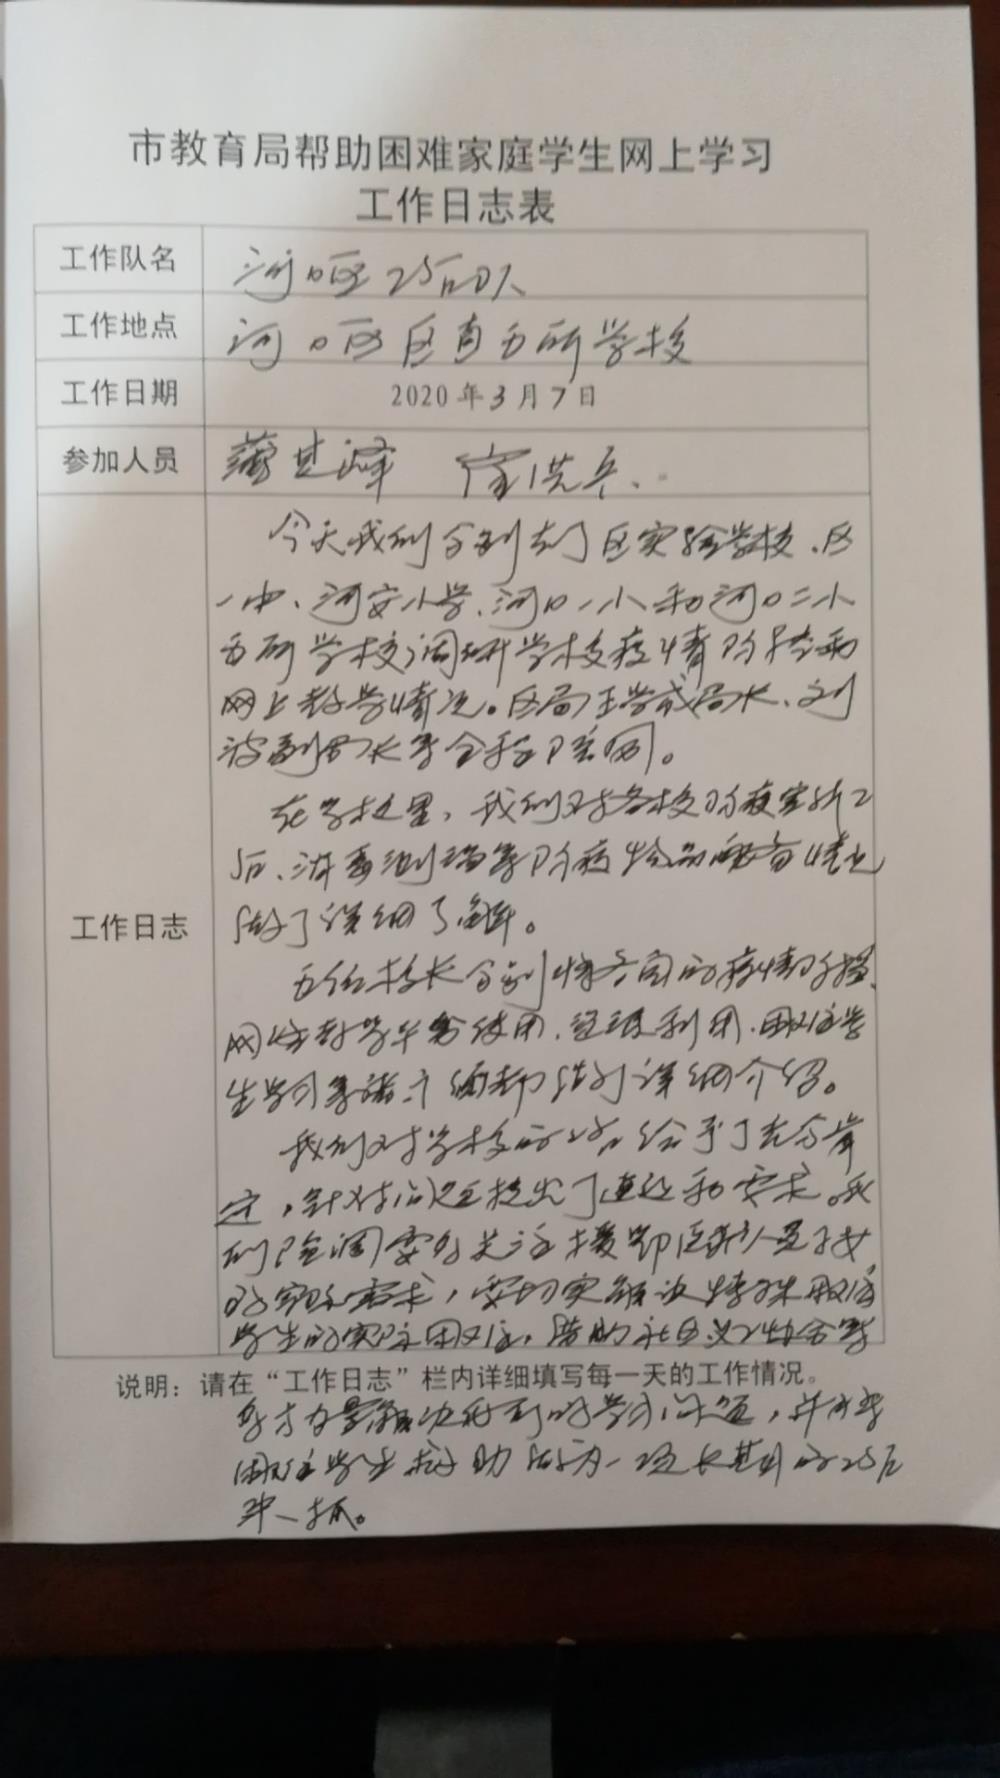 市教育局帮助困难家庭学生网上学习
工作日志表
工作队名 河口区工作队
工作地点 河口区区直五所学校
工作日期 2020年3月7日
参加人员 洪兵、
今天我们分别去了区实验学校、区
一中、河安小学、河口一小和河口二小
五所学校调研学校疫情防控和
网上教学情况。区局王学成局长、刘
波副局长等全程陪同。
在学校里,我们对各校防疫室
消毒测温等防疫物品配备情况
做了详细了解。
五位校长分别将各自的疫情防控、
网络教学平台使用、资源利用、困难学
生学习等诸方面都做了详细介绍。
我们对学校的工作给予了充分肯
定,针对问题提出了建议和要求。我
们强调要多关注援鄂医护人员子女
的实际需求,要切实解决特殊困难
学生的实际困难,借助社区义工协会等
工作日志
说明:请在“工作日志”栏内详细填写每一天的工作情况。
多方力量解决好孩子的学习问题,并将
困难学生救助作为一项长期的工作
来抓。